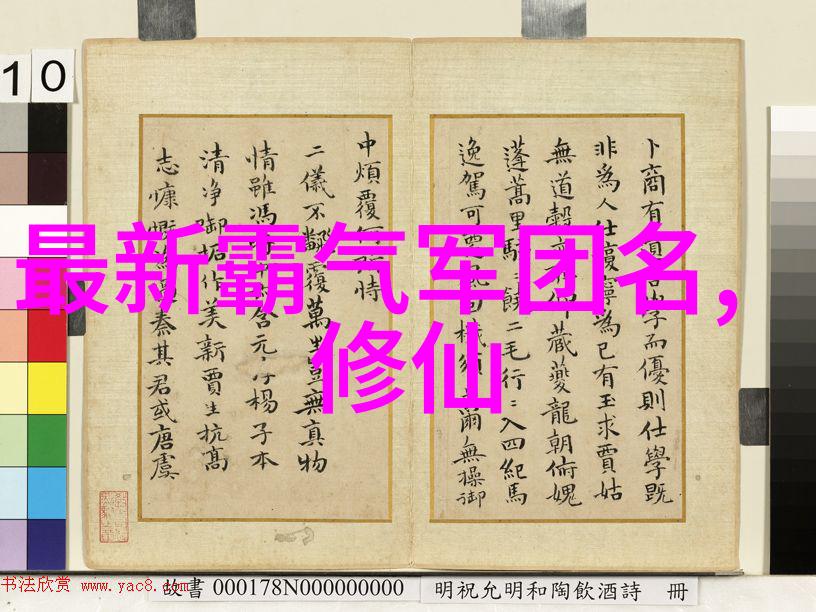 10
最新霸气军团名,
修仙
卜商有言學而優則仕學既
非為人仕寧為己有玉求賈姑
無道穀藏夔龍朝俯媿
蓬蒿里二毛行〻入四紀馬
逸駕可爾無操御
中煩覆時
二儀不翻覆萬豈無真物
情雖馮含元楊子本
清淨作美新賈生抗高
志慷秦其君或唐虞
书法欣赏 www.yac8.com
故書 000178N000000000
明祝允明和陶飲酒詩 冊